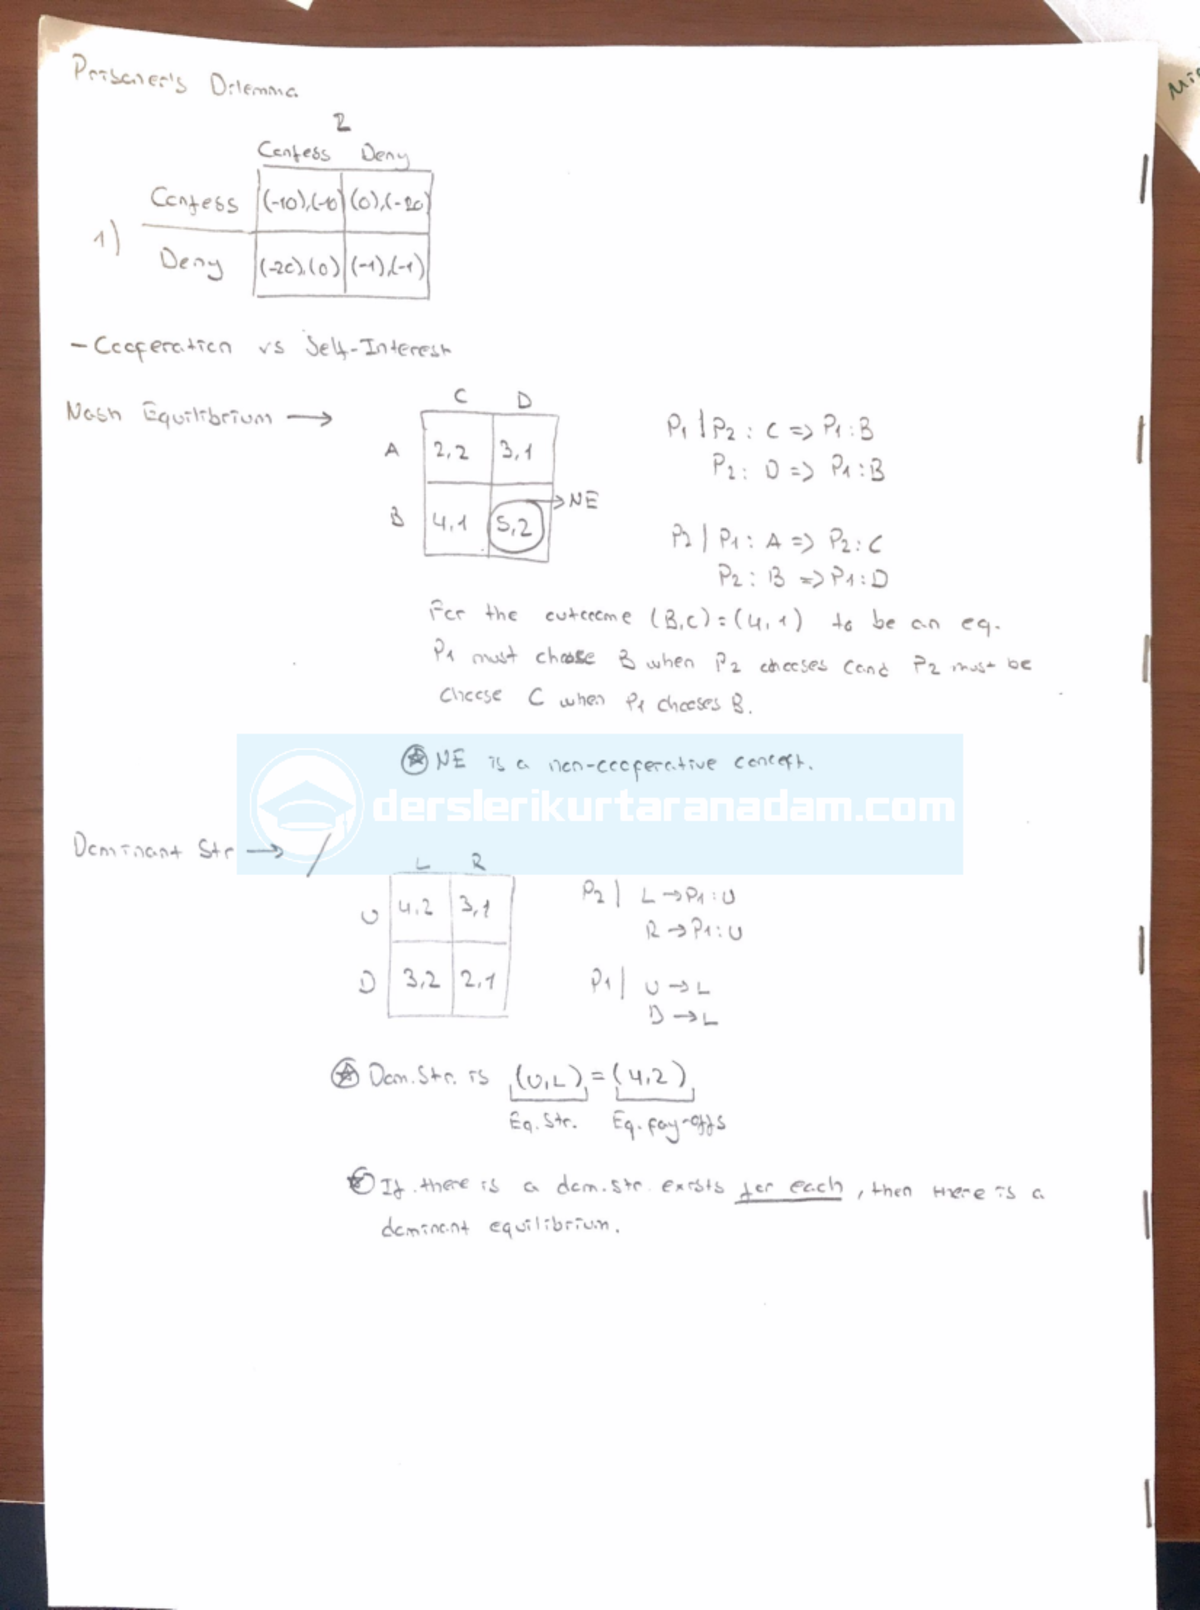 Prisoner's Dilemma
2
Confess Deny
Confess (-10),(-10) (0),(-20)
1)
Deny (-20),(0) (-1),(-1)
- Cooperation vs Self-Interest
Nash Equilibrium →
C D
A 2,2 3,1
B 4,1 5,2 → NE
P1 | P2 : C => P1 : B
P2 : D => P1 : B
P2 | P1 : A => P2 : C
P2 : B => P1 : D
For the outcome (B,C) = (4,1) to be an eq.
P1 must choose B when P2 chooses C and P2 must be
choose C when P1 chooses B.
NE is a non-cooperative concept.
derslerikurtaranadam.com
Dominant Str →
L R
U 4,2 3,1
D 3,2 2,1
P2 | L → P1 : U
R → P1 : U
P1 | U → L
D → L
Dom. Str. is (U,L) = (4,2)
Eq. Str. Eq. pay-offs
If there is a dom. str. exists for each, then there is a
dominant equilibrium.